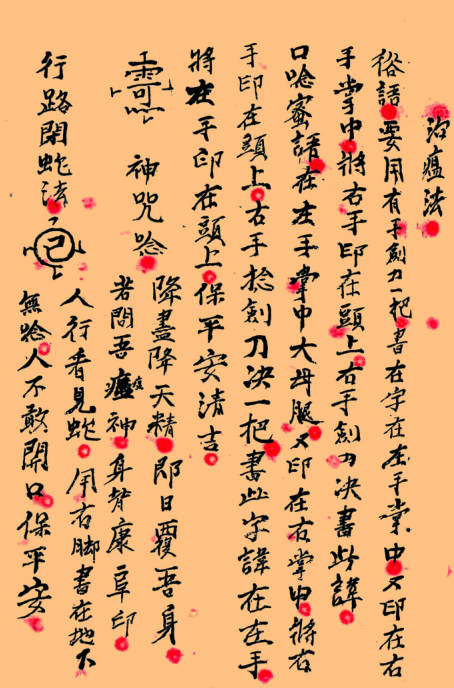 治瘟法
俗語要用有手劍刀一把書在字在左手掌中又印在右
手掌中將右手印在頭上右手劍刀決書此諱
口唸蜜語在左手掌中大母腿又印在右掌中將右
手印在頭上右手捻劍刀決一把書此字諱在左手
將左手印在頭上保平安清吉
神咒唸
降盡降天精即日覆吾身
者問吾瘟神身康印
行路閉蛇法
人行看見蛇用右脚書在地下
無唸人不敢開口保平安